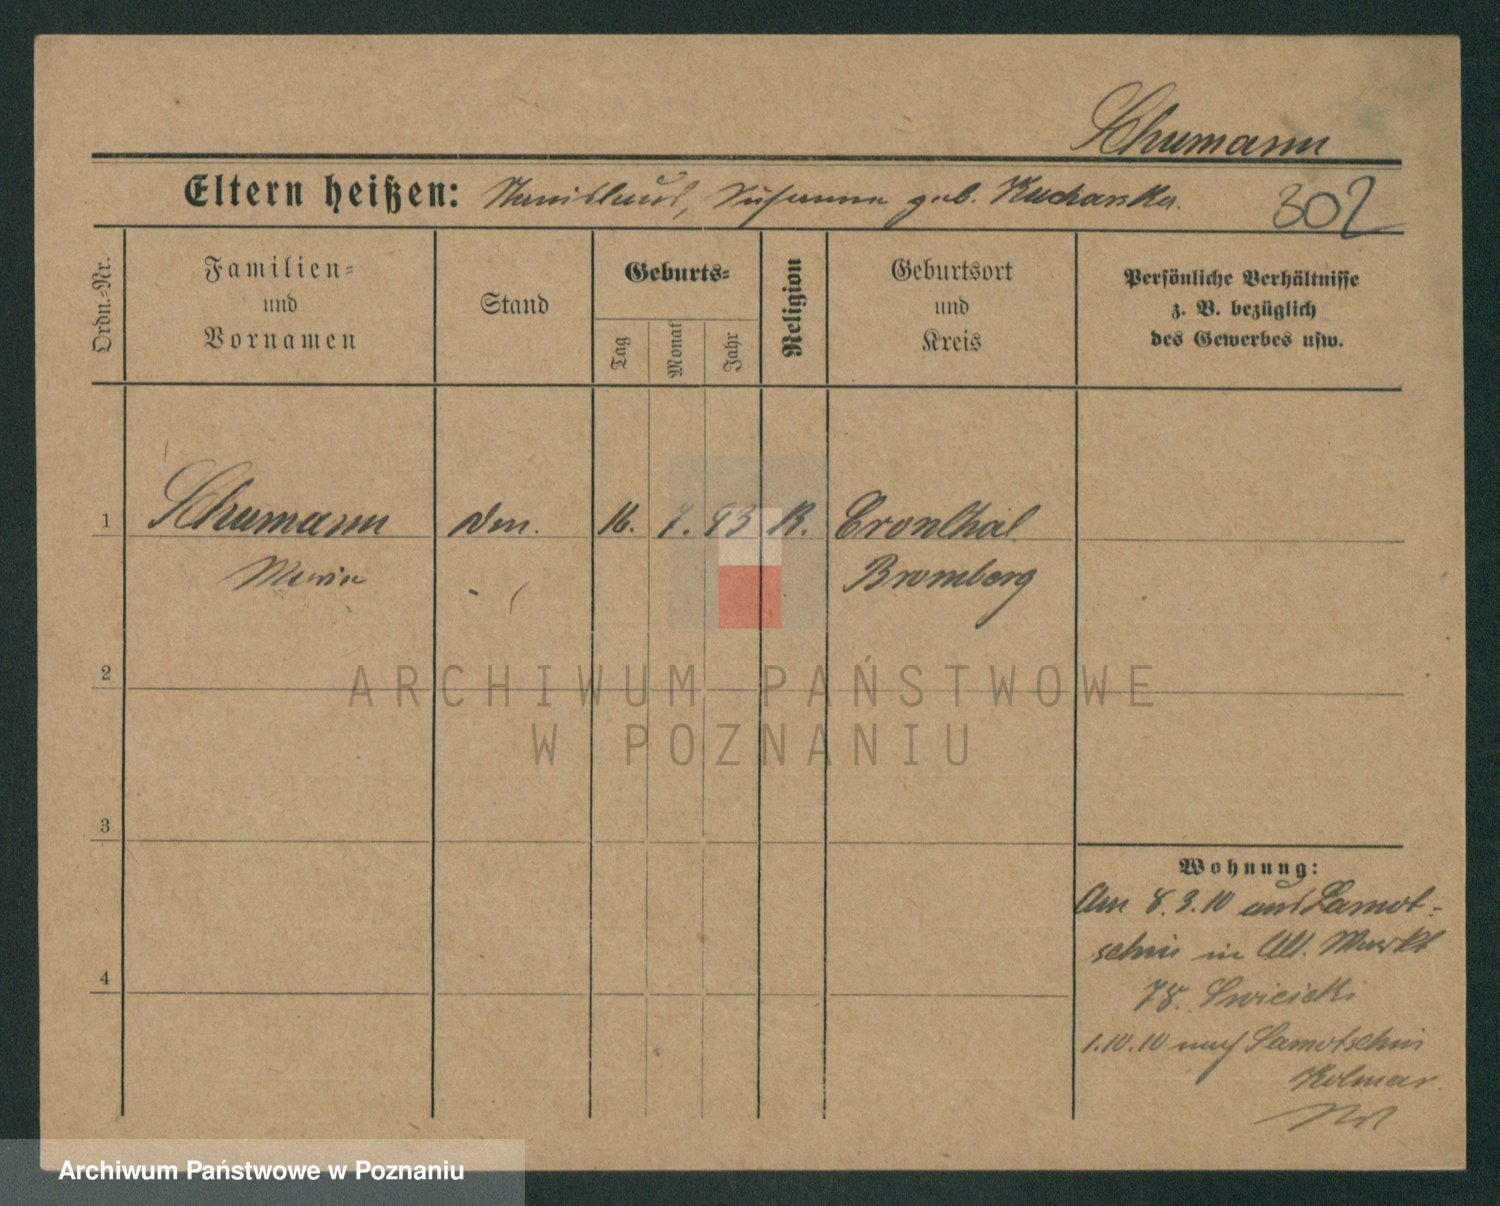 Schumann
Eltern heißen: Stanislaus, Susanna geb. Kucharska.
302
Ordn.=Nr.
Familien=
und
Vornamen
Stand
Geburts=
Tag
Monat
Jahr
Religion
Geburtsort
und
Kreis
Persönliche Verhältnisse
z. B. bezüglich
des Gewerbes usw.
1 Schumann 16. 7. 93 K. Cronthal
Maria Bromberg
2
3
4
Wohnung:
Am 8.3.10 aus Samot-
schin in Alt. Markt
78. Swicicki
1.10.10 nach Samotschin
Kolmar.
ARCHIWUM PAŃSTWOWE
W POZNANIU
Archiwum Państwowe w Poznaniu